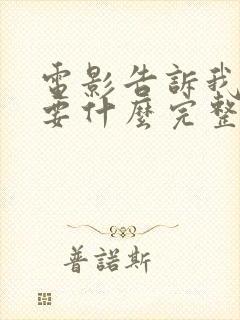 電影告訴我
要什麼完整
普諾斯